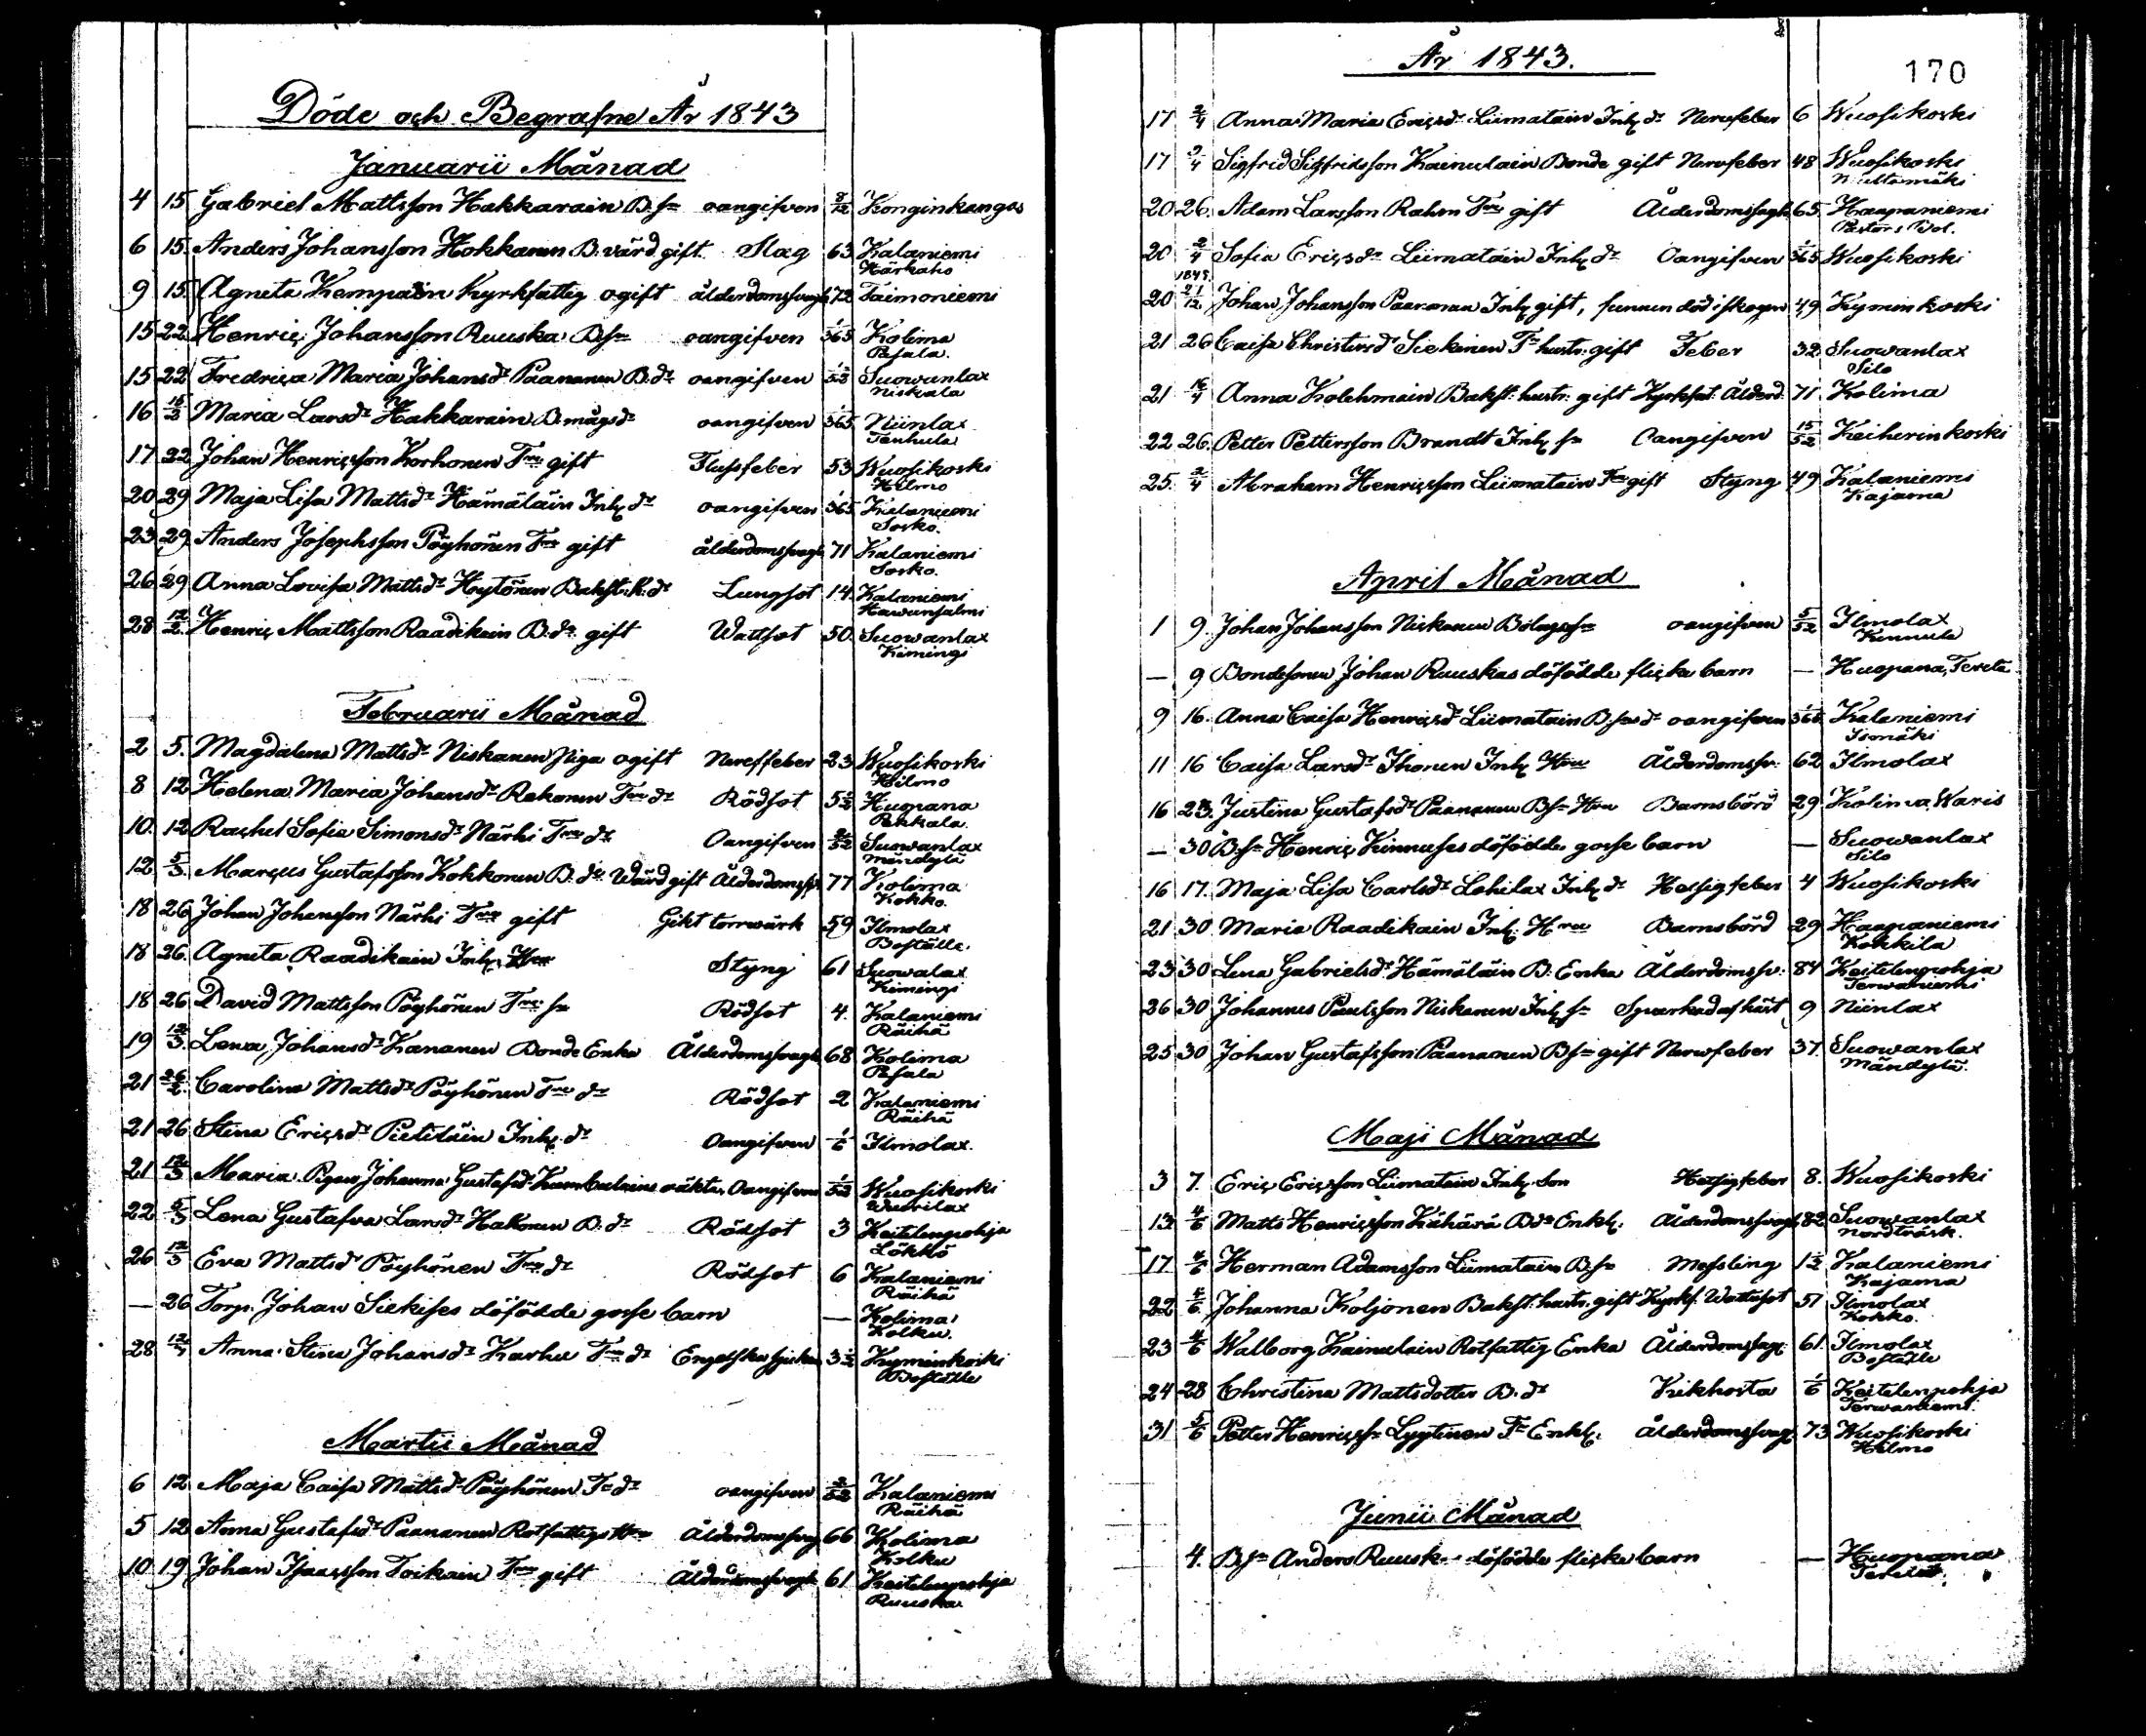 Döde och Begrafne År 1843
Januarii Månad
4 15 Gabriel Mattsson Hakkarain B. sn oangifven 8/12 Konginkangas
6 15. Anders Johansson Hokkanen B. värd gift. Slag 63 Kalaniemi
Härkaho
9 15. Agneta Kempain Kyrkfattig ogift ålderdomssvagh 72 Taimoniemi
15 22 Henric Johansson Ruuska Bsn oangifven 1/365 Kolima
Pasala.
15 22 Fredrica Maria Johansdr Paananen B. dr oangifven Suowanlax
Niskala
16 Maria Larsdr Hakkarain B. mågsdr oangifven 1/365 Niinlax
Tenhula
17 22 Johan Henricsson Korhonen Trp gift Flussfeber 53 Wuosikoski
Hilmo
20 29 Maja Lisa Mattsdr Hämäläin Inh dr oangifven 1/365 Kalaniemi
Sosko.
23 29. Anders Josephsson Pöyhönen Trp gift ålderdomssvagh 71 Kalaniemi
Sosko.
26 29 Anna Lovisa Mattsdr Hytönen Bakst. k. dr Lungsot 14. Kalaniemi
Hawunsalmi
28 12/2 Henric Mattsson Raadikain B. dr gift Wattsot 50. Suowanlax
Kimingi
Februarii Månad
2 5. Magdalena Mattsdr Niskanen Piga ogift Nerffeber 23 Wuosikoski
Hilmo
8 12 Helena Maria Johansdr Rekonen Trp dr Rödsot 5 1/2 Huopana
Pekkala.
10. 12 Rachel Sofia Simonsdr Närhi Trp dr Oangifven Suowanlax
Mändylä
12 5/3. Marcus Gustafsson Kokkonen B. dr Wärd gift Ålderdomssv 77 Kolima
Kokko.
18 26 Johan Johansson Närhi Trp gift Gikt torrwärk 59 Ilmolax
Boställe.
18 26. Agneta Raadikain Inh. Hru Styng 61 Suowalax
Kimingi
18 26 David Mattsson Pöyhönen Trp. sn Rödsot 4. Kalaniemi
Räihä
19 12/3. Lena Johansdr Kananen Bonde Enka Ålderdomssvagh 68 Kolima
Pasala
21 26/2. Carolina Mattsdr Pöyhönen Trp dr Rödsot 2 Kalaniemi
Räihä
21 26 Stina Ericsdr Pietiläin Inh. dr Oangifven 1/6 Ilmolax.
21 12/3 Maria Pigans Johanna Gustafsdr oäkta. Oangifven 1/52 Wuosikoski
Wuorilax
22 5/3 Lena Gustafva Larsdr Hakonen B. dr Rödsot 3 Keitelenpohja
Lökkö
26 12/3 Eva Mattsdr Pöyhönen Trp. dr Rödsot 6 Kalaniemi
Räihä
— 26 Torp. Johan Siekises döfödde gosse barn — Kolima
Kolku.
28 Anna Stina Johansdr Karhu Trp dr Engelska sjukan 3 1/2 Kyminkoski
Boställe
Martii Månad
6 12 Maja Caisa Mattsdr Pöyhönen Tr dr oangifven 2/52 Kalaniemi
Räihä
5 12 Anna Gustafsdr Paananen Rotfattigs Hru Ålderdomssvag 66 Kolima
Kolku
10 19 Johan Isaacsson Toikain Trp gift Ålderdomssvagh 61 Keitelenpohja
Ruuska
År 1843.
170
17 2/4 Anna Maria Ericsdr Liimatain Inh dr Nervfeber 6 Wuosikoski
17 2/4 Sigfrid Sigfridsson Kainulain Bonde gift Nervfeber 48 Wuosikoski
Multamäki
20 26. Adam Larsson Rahm Trp gift Ålderdomssvagh 65. Haapaniemi
Pastors Bol.
20 2/4 Sofia Ericsdr Liimatain Inh dr Oangifven 1/365 Wuosikoski
20 Johan Johansson Paananen Inh gift, funnen död i skogen 49 Kyminkoski
21 26 Caisa Christersdr Siekinen Tr hustr. gift Feber 32 Suowanlax
Silo
21 16/4 Anna Kolehmain Bakst. hustr. gift Kyrkfat. Ålderd. 71 Kolima
22 26. Petter Pettersson Brandt Inh sn Oangifven 15/52 Keiherinkoski
25. 2/4 Abraham Henricsson Liimatain Trp gift Styng 49 Kalaniemi
Kajama
April Månad
1 9. Johan Johansson Niskanen Bolagssn oangifven 5/52 Ilmolax
Kinnula
— 9 Bondesonen Johan Ruuskas döfödde flicke barn — Huopana, Tereta
9 16. Anna Caisa Henricsdr Liimatain B. sons dr oangifven 1/365 Kalaniemi
Isomäki
11 16 Caisa Larsdr Ihonen Inh Hru Ålderdomssv. 62 Ilmolax
16 23. Justina Gustafsdr Paananen Bsn Hru Barnsbörd 29 Kolima, Waris
— 30 B. sn Henric Kinnuses döfödde gosse barn — Suowanlax
Silo
16 17. Maja Lisa Carlsdr Lehilax Inh dr Hetsigfeber 4 Wuosikoski
21 30 Maria Raadikain Inh. Hru Barnsbörd 29 Haapaniemi
Kokkila
23 30 Lena Gabrielsdr Hämäläin B. Enka Ålderdomssv. 84 Keitelenpohja
Terwaniemi
26 30 Johannes Paulsson Niskanen Inh sn Sparkad af häst 9 Niinlax
25 30 Johan Gustafsson Paananen Bsn gift Nervfeber 37. Suowanlax
Mändylä.
Maji Månad
3 7. Eric Ericsson Liimatain Inh. Son Hetsigfeber 8. Wuosikoski
13 4/6 Matts Henricsson Kähärä Bde Enkl. Ålderdomssvagh 82 Suowanlax
Nordträsk.
17. 4/6 Herman Adamsson Liimatain B. sn Messling 1 1/2 Kalaniemi
Kajama
22 4/6. Johanna Koljonen Bakst. hustr. gift Kyrkf. Wattusot 51 Ilmolax
Kokko.
23 4/6 Walborg Kainulain Rotfattig Enka Ålderdomssvag. 61. Ilmolax
Boställe
24 28 Christina Mattsdotter B. dr Kikhosta 1/6 Keitelenpohja
Terwaniemi.
31 5/6 Petter Henricssn Lyytinen Tr Enkl. Ålderdomssvag. 73 Wuosikoski
Hilmo
Junii Månad
4. B. sn Anders döfödde flicke barn — Huopana